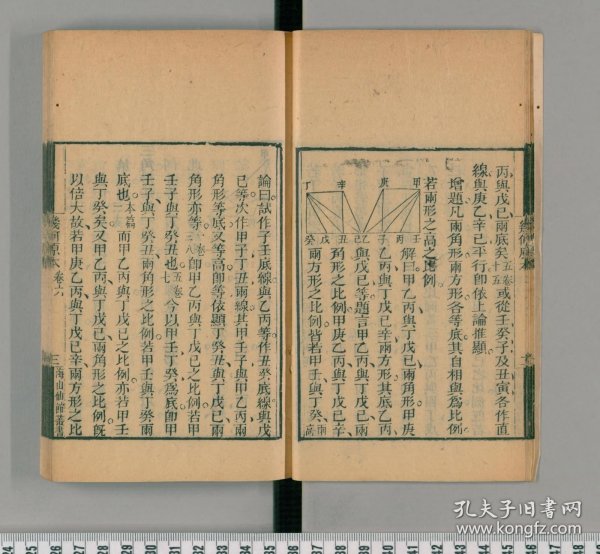 丙與戊己兩底矣五卷十五或從壬癸子及丑寅各作直
線與庚乙辛己平行卽依上論推顯
增題凡兩角形兩方形各等底其自相與爲比例
若兩形之高之比例
解曰甲乙丙與丁戊己兩角形甲庚
乙丙與丁戊己辛兩方形其底乙丙
與戊己等題言甲乙丙與丁戊己兩
角形之比例甲庚乙丙與丁戊己辛
兩方形之比例皆若甲壬與丁癸兩高
甲 庚 辛 丁
丙 壬 子 乙 己 丑 戊 癸
論曰試作子壬底線與乙丙等作丑癸底線與戊
己等次作甲子丁丑兩線其甲壬子與甲乙丙兩
角形等底又等高卽等依顯丁癸丑與丁戊己兩
角形亦等卽甲乙丙與丁戊己之比例若甲
壬子與丁癸丑也今以甲壬丁癸爲底卽甲
壬子與丁癸丑兩角形之比例若甲壬與丁癸兩
底也本篇一而甲乙丙與丁戊己之比例亦若甲壬
與丁癸矣又甲乙丙與丁戊己兩角形之比例旣
以倍大故若甲庚乙丙與丁戊己辛兩方形之比
幾何原本 卷六
三 海山仙館叢書
孔夫子旧书网
www.kongfz.com
24 25 26 27 28 29 30 31 32 33 34 35 36 37 38 39 40 41 42 43 44 45 46 47 48